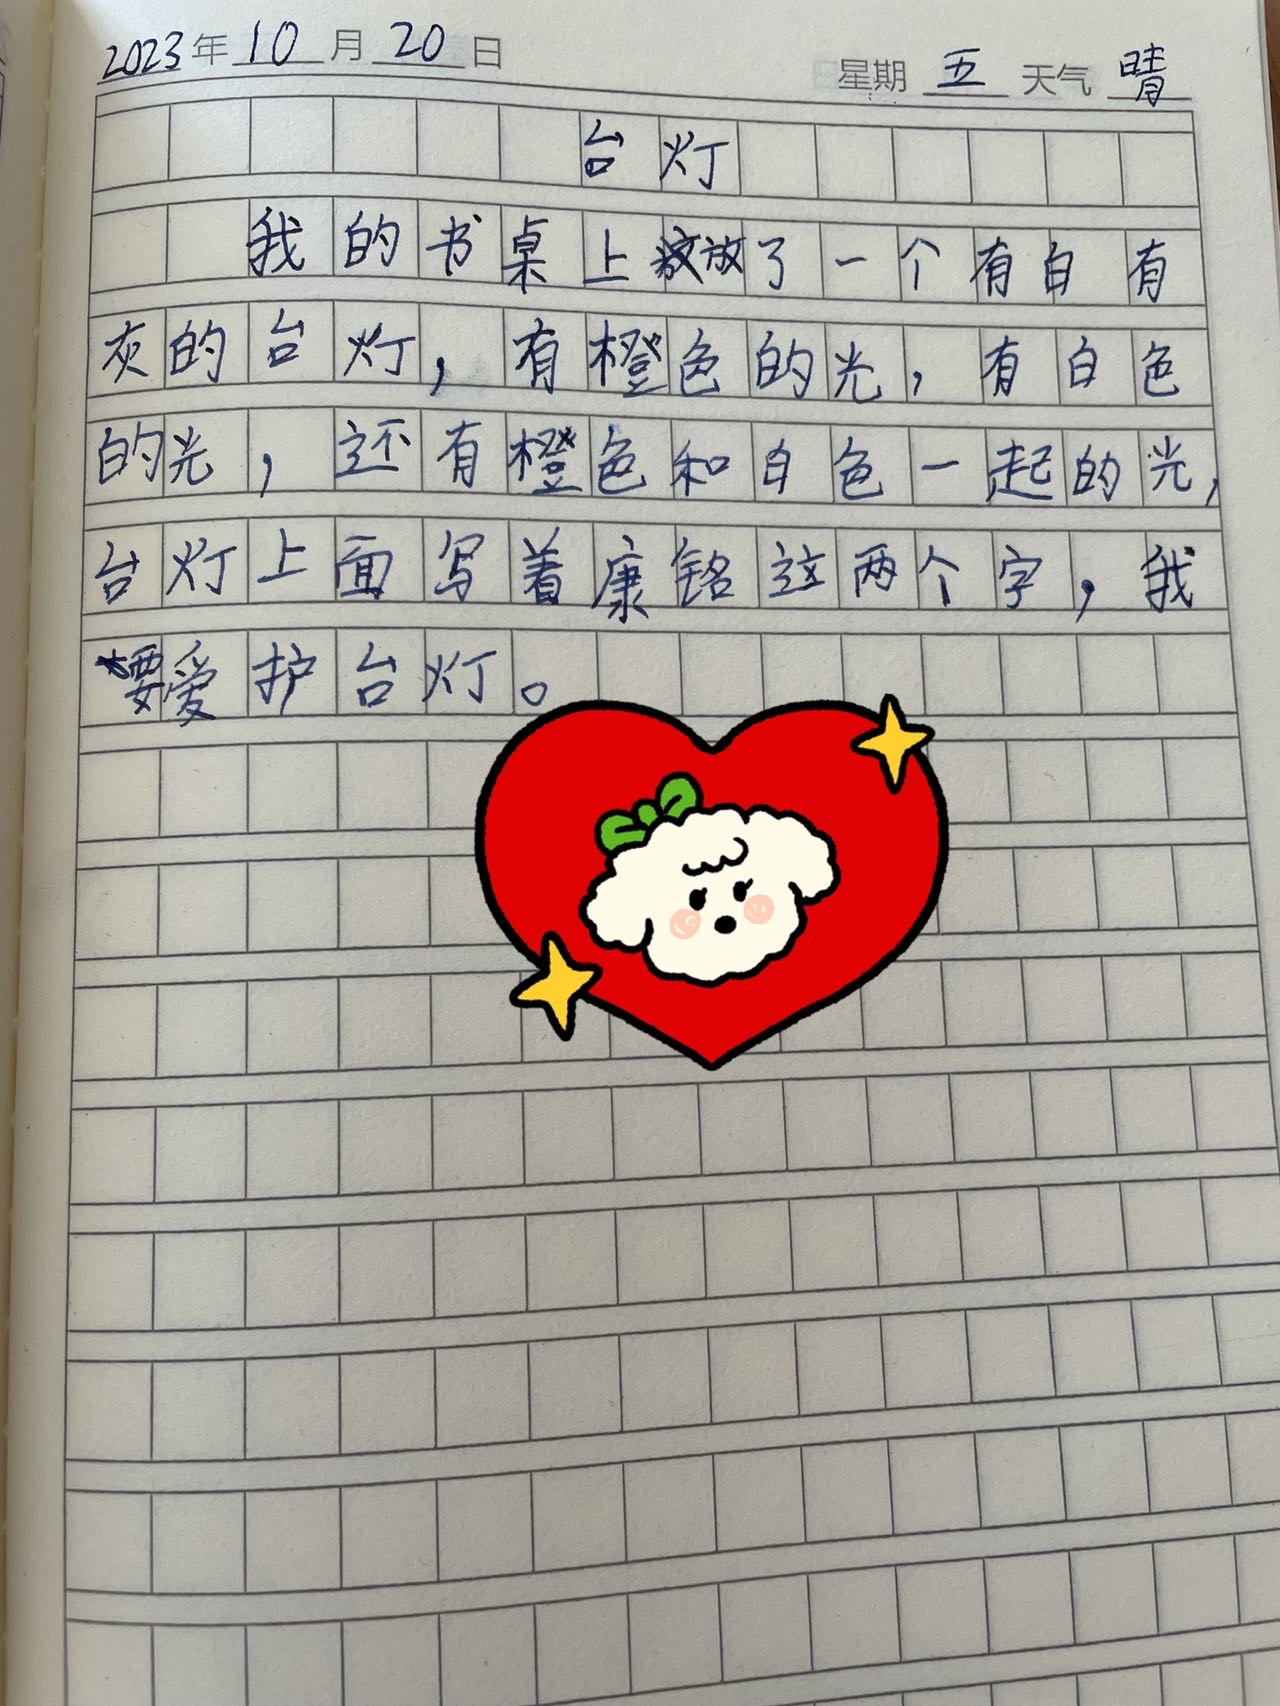 2023年10月20日 星期五 天气晴
台灯
我的书桌上放了一个有白有
灰的台灯，有橙色的光，有白色
的光，还有橙色和白色一起的光，
台灯上面写着康铭这两个字，我
要爱护台灯。